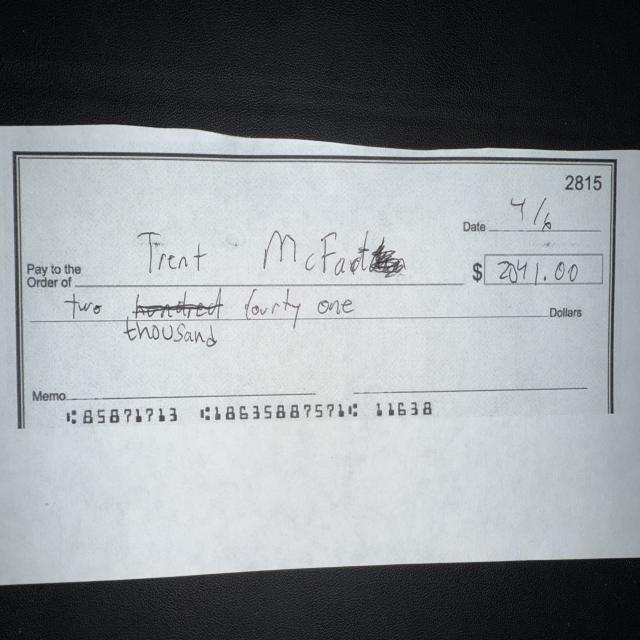 2815
Date 4/6
Pay to the
Order of Trent McFart
$ 2041.00
two hundred fourty one Dollars
thousand
Memo
⑆85871713 ⑆18635887571⑆ 11638